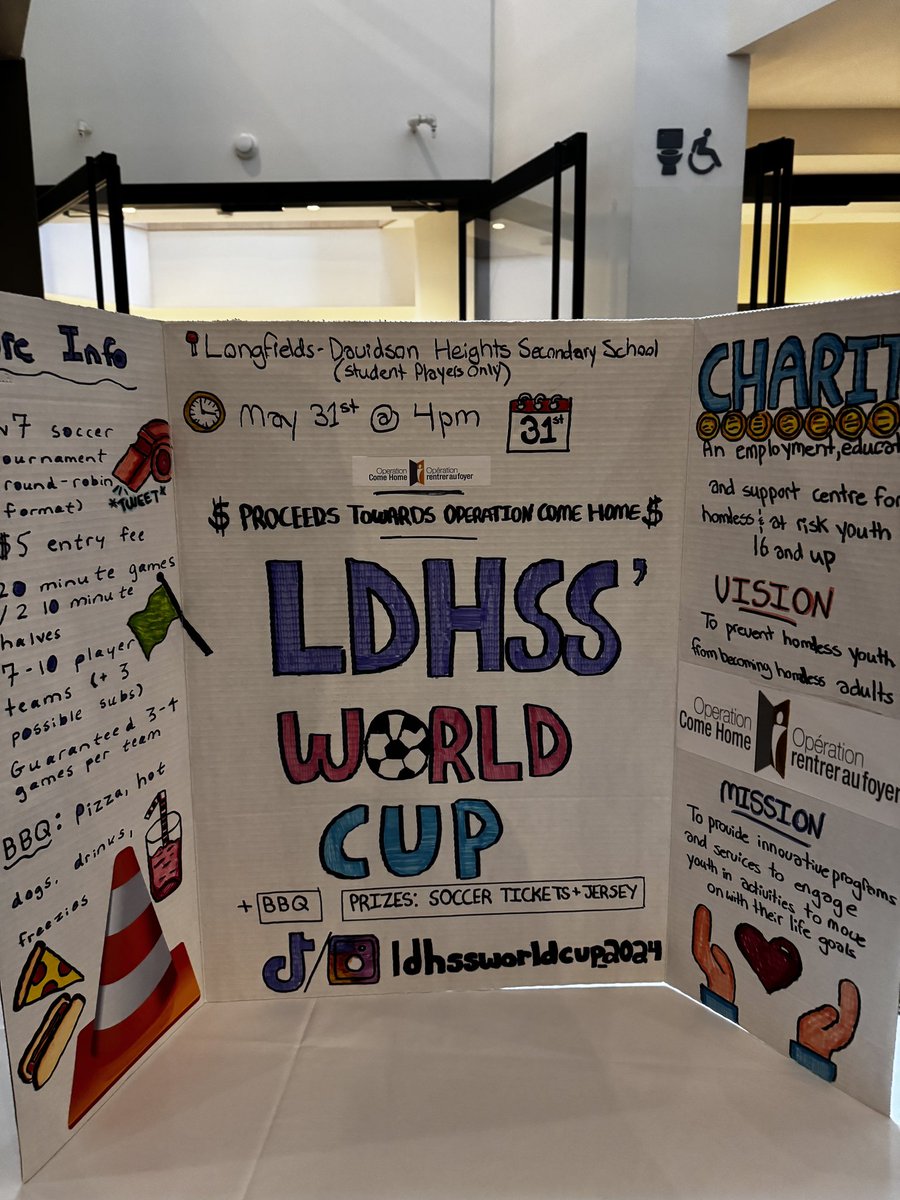 ore Info
v7 soccer
ournament
round-robin
format)
*TWEET*
$5 entry fee
20 minute games
/2 10 minute
halves
7-10 player
teams (+ 3
possible subs)
Guaranteed 3-4
games per team
BBQ: Pizza, hot
dogs, drinks,
freezies
Longfields-Davidson Heights Secondary School
(Student Players Only)
May 31st @ 4pm
31st
Operation Come Home
Opération rentrer au foyer
$ PROCEEDS TOWARDS OPERATION COME HOME $
LDHSS'
WORLD
CUP
+ BBQ
PRIZES: SOCCER TICKETS + JERSEY
/ ldhssworldcup_2024
CHARIT
An employment, educat
and support centre for
homless & at risk youth
16 and up
VISION
To prevent homless youth
from becoming homless adults
Operation
Come Home
Opération
rentrer au foyer
MISSION
To provide innovative programs
and services to engage
youth in activities to move
on with their life goals